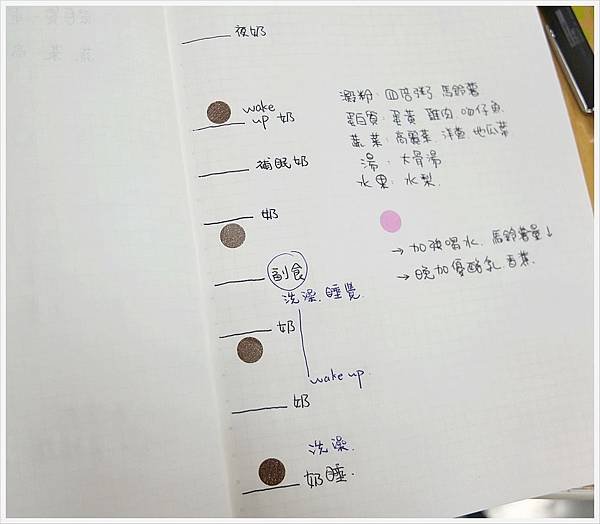 夜奶
wake
up 奶
補眠奶
奶
副食
洗澡.睡覺.
奶
wake up.
奶
洗澡.
奶睡.
澱粉:四倍粥 馬鈴薯
蛋白質:蛋黃 雞肉 吻仔魚
蔬菜:高麗菜.洋蔥.地瓜葉
湯:大骨湯
水果:水梨.
→ 加強喝水.馬鈴薯量↓
→ 晚加優酪乳.香蕉.